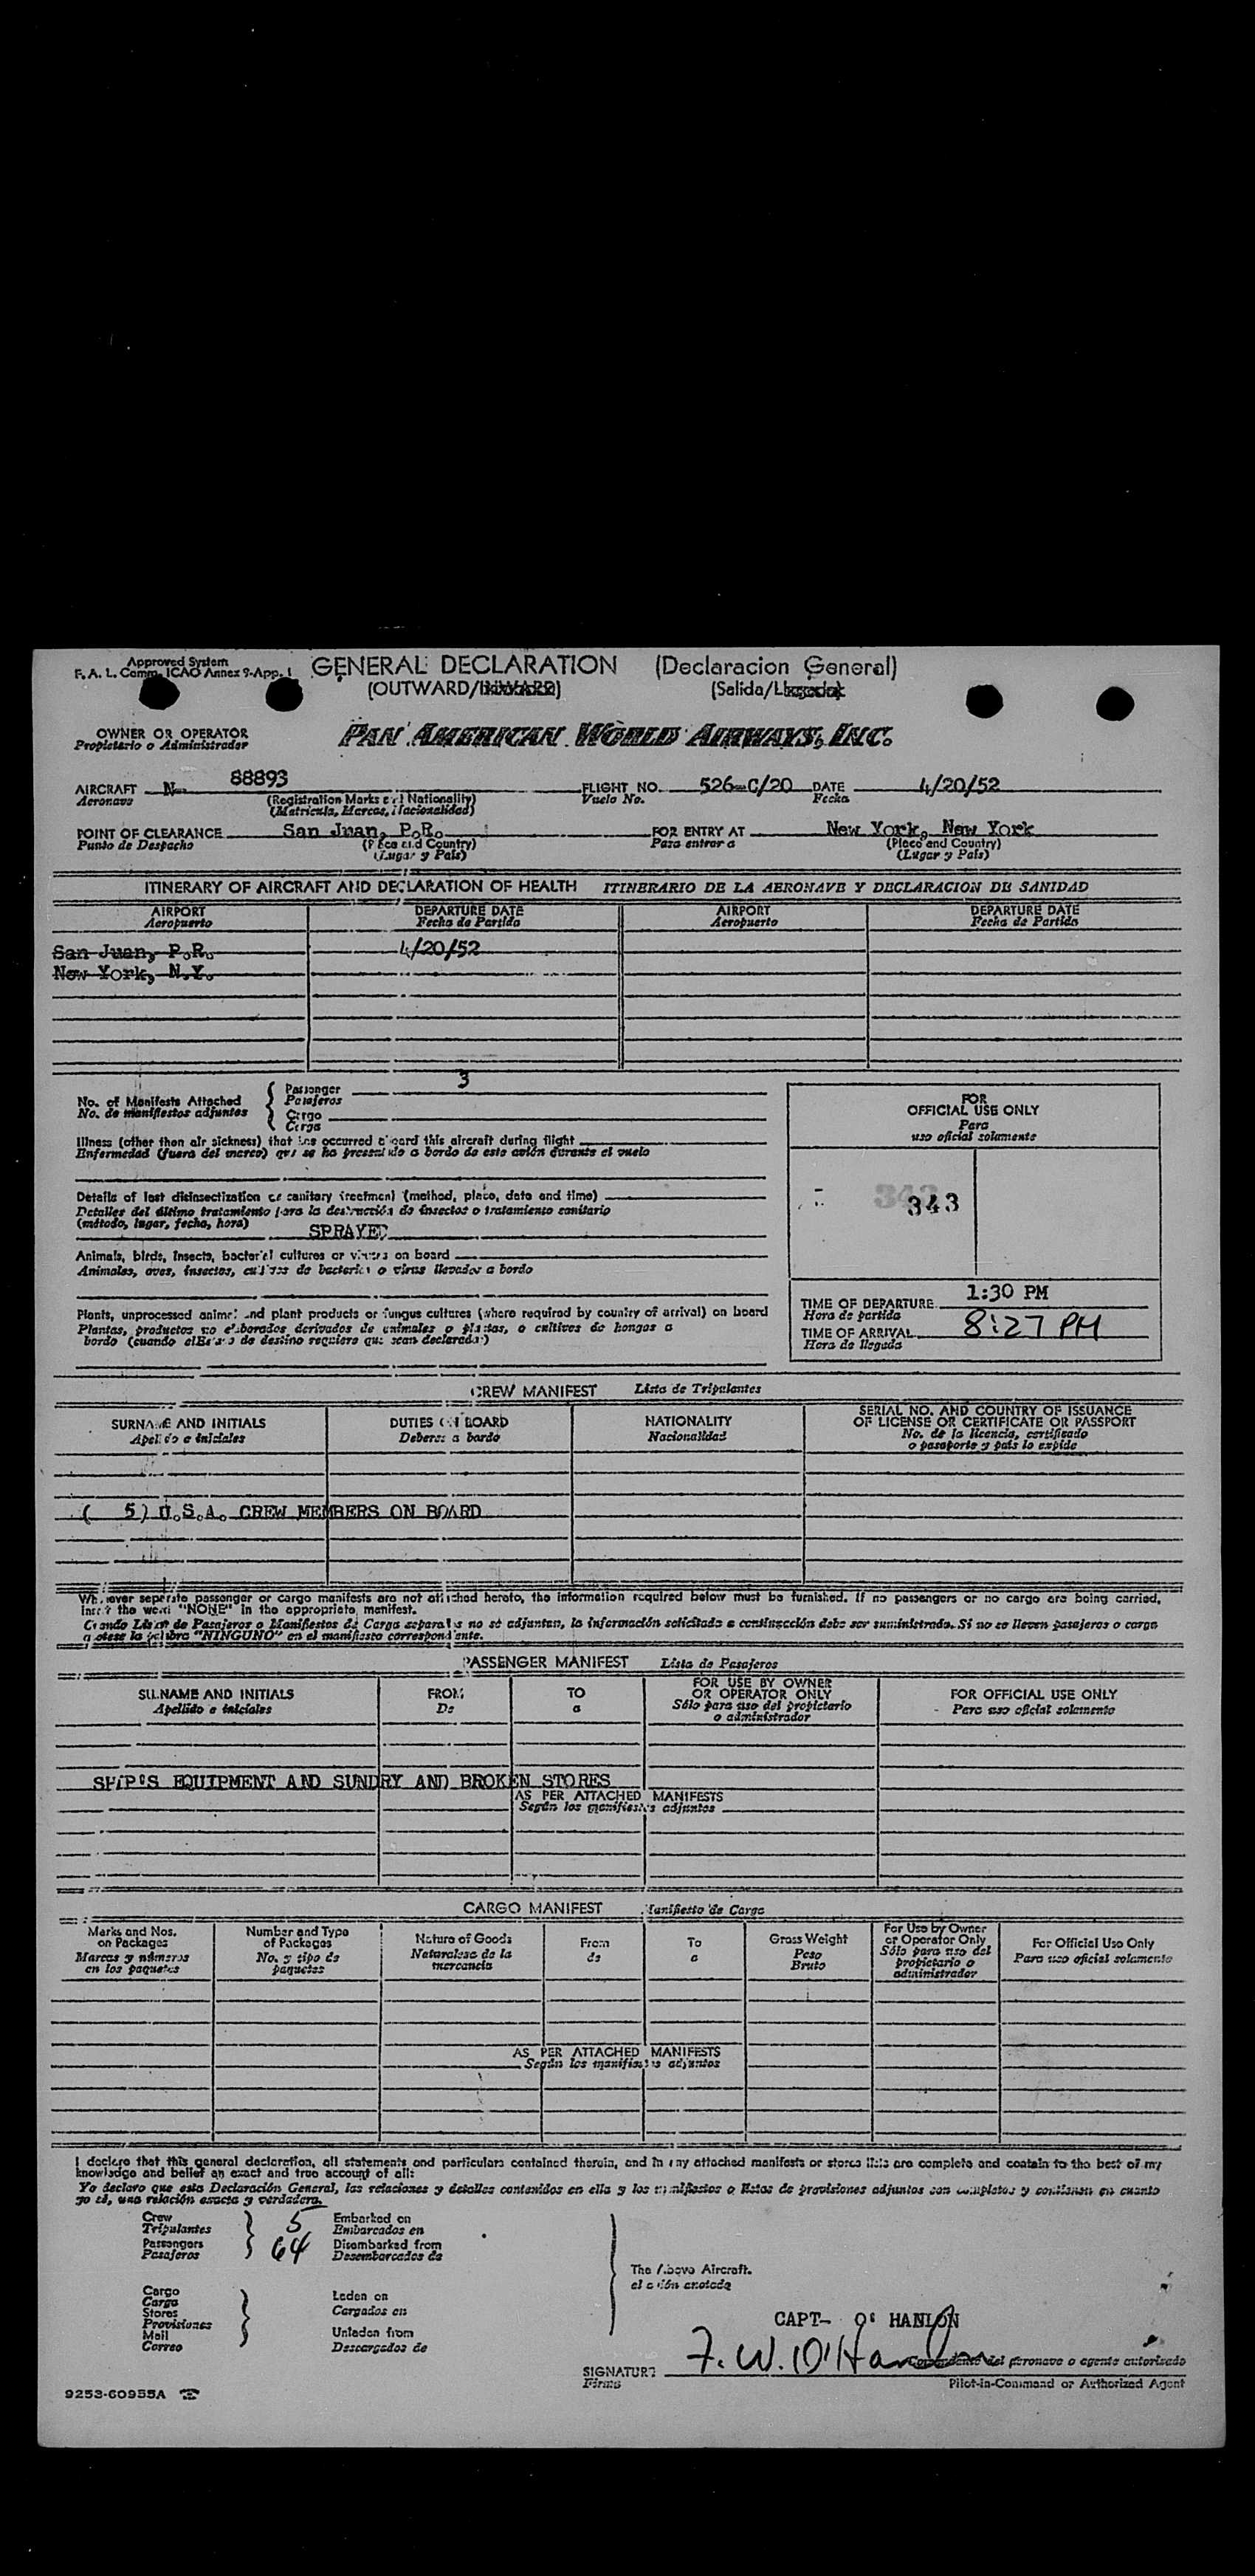 Approved System
F. A. L. Comm. ICAO Annex 9-App. 1
GENERAL DECLARATION (Declaracion General)
(OUTWARD/INWARD) (Salida/Llegada)
OWNER OR OPERATOR
Propietario o Administrador
PAN AMERICAN WORLD AIRWAYS, INC.
AIRCRAFT N- 88893 FLIGHT NO. 526-C/20 DATE 4/20/52
Aeronave (Registration Marks and Nationality) Vuelo No. Fecha
(Matricula, Marcas, Nacionalidad)
POINT OF CLEARANCE San Juan, P.R. FOR ENTRY AT New York, New York
Punto de Despacho (Place and Country) Para entrar a (Place and Country)
(Lugar y País) (Lugar y País)
ITINERARY OF AIRCRAFT AND DECLARATION OF HEALTH ITINERARIO DE LA AERONAVE Y DECLARACION DE SANIDAD
AIRPORT DEPARTURE DATE AIRPORT DEPARTURE DATE
Aeropuerto Fecha de Partida Aeropuerto Fecha de Partida
San Juan, P.R. 4/20/52
New York, N.Y.
No. of Manifests Attached
No. de manifiestos adjuntos
Passenger 3
Pasajeros
Cargo
Carga
FOR
OFFICIAL USE ONLY
Para
uso oficial solamente
Illness (other than air sickness) that has occurred aboard this aircraft during flight
Enfermedad (fuera del mareo) que se ha presentado a bordo de este avión durante el vuelo
Details of last disinsectization or sanitary treatment (method, place, date and time)
Detalles del último tratamiento para la destrucción de insectos o tratamiento sanitario
(método, lugar, fecha, hora)
SPRAYED
343
343
Animals, birds, insects, bacterial cultures or virus on board
Animales, aves, insectos, cultivos de bacterias o virus llevados a bordo
Plants, unprocessed animal and plant products or fungus cultures (where required by country of arrival) on board
Plantas, productos no elaborados derivados de animales o plantas, o cultivos de hongos a
bordo (cuando el País de destino requiere que sean declarados)
TIME OF DEPARTURE 1:30 PM
Hora de partida
TIME OF ARRIVAL 8:27 PM
Hora de llegada
CREW MANIFEST Lista de Tripulantes
SURNAME AND INITIALS DUTIES ON BOARD NATIONALITY SERIAL NO. AND COUNTRY OF ISSUANCE
OF LICENSE OR CERTIFICATE OR PASSPORT
Apellido e iniciales Deberes a bordo Nacionalidad No. de la licencia, certificado
o pasaporte y país lo expide
( 5) U.S.A. CREW MEMBERS ON BOARD
Whenever seperate passenger or cargo manifests are not attached hereto, the information required below must be furnished. If no passengers or no cargo are being carried,
insert the word "NONE" in the appropriate manifest.
Cuando Listas de Pasajeros o Manifiestos de Carga separados no se adjuntan, la información solicitada a continuación debe ser suministrada. Si no se lleven pasajeros o carga
anotese la palabra "NINGUNO" en el manifiesto correspondiente.
PASSENGER MANIFEST Lista de Pasajeros
SURNAME AND INITIALS FROM TO FOR USE BY OWNER
OR OPERATOR ONLY FOR OFFICIAL USE ONLY
Apellido e iniciales De a Sólo para uso del propietario
o administrador Para uso oficial solamente
SHIP'S EQUIPMENT AND SUNDRY AND BROKEN STORES
AS PER ATTACHED MANIFESTS
Según los manifiestos adjuntos
CARGO MANIFEST Manifiesto de Carga
Marks and Nos.
on Packages
Marcas y números
en los paquetes
Number and Type
of Packages
No. y tipo de
paquetes
Nature of Goods
Naturaleza de la
mercancia
From
de
To
a
Gross Weight
Peso
Bruto
For Use by Owner
or Operator Only
Sólo para uso del
propietario o
administrador
For Official Use Only
Para uso oficial solamente
AS PER ATTACHED MANIFESTS
Según los manifiestos adjuntos
I declare that this general declaration, all statements and particulars contained therein, and in any attached manifests or stores lists are complete and contain to the best of my
knowledge and belief an exact and true account of all:
Yo declaro que esta Declaración General, las relaciones y detalles contenidos en ella y los manifiestos o listas de provisiones adjuntos son completos y contienen en cuanto
yo sé, una relación exacta y verdadera.
Crew 5 Embarked on
Tripulantes Embarcados en
Passengers 64 Disembarked from
Pasajeros Desembarcados de
The Above Aircraft.
el avión anotado
Cargo
Carga
Stores
Provisiones
Mail
Correo
Laden on
Cargados en
Unladen from
Descargados de
CAPT- O' HANLON
SIGNATURE F. W. O'Hanlon
Firma
Comandante del aeronave o agente autorizado
Pilot-in-Command or Authorized Agent
9253-60955A